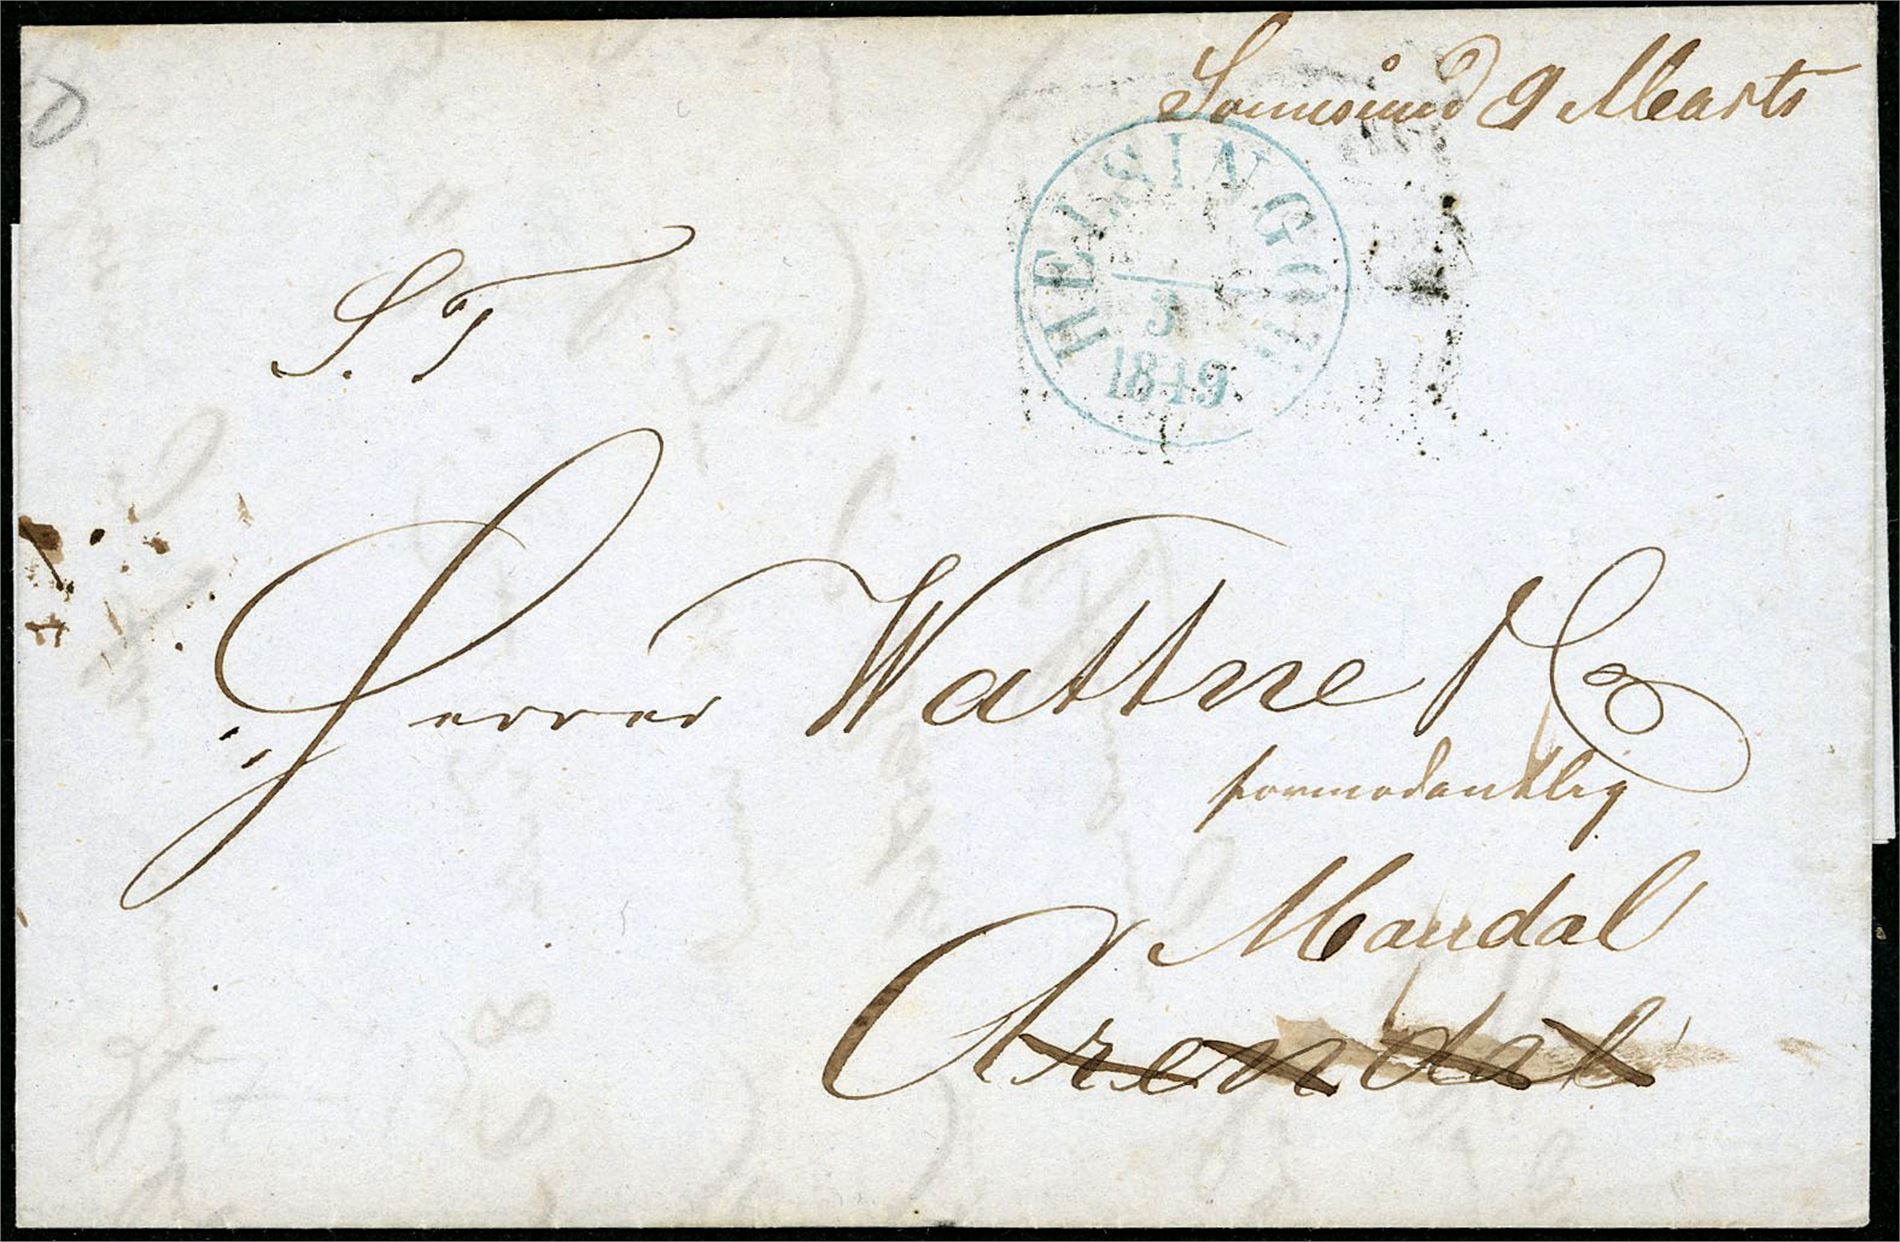 Svinesund 9 Marts
HELSINGÖR
3
1849
S. T
Herrer Wattne & Co
formodentlig
Mandal
Arendal